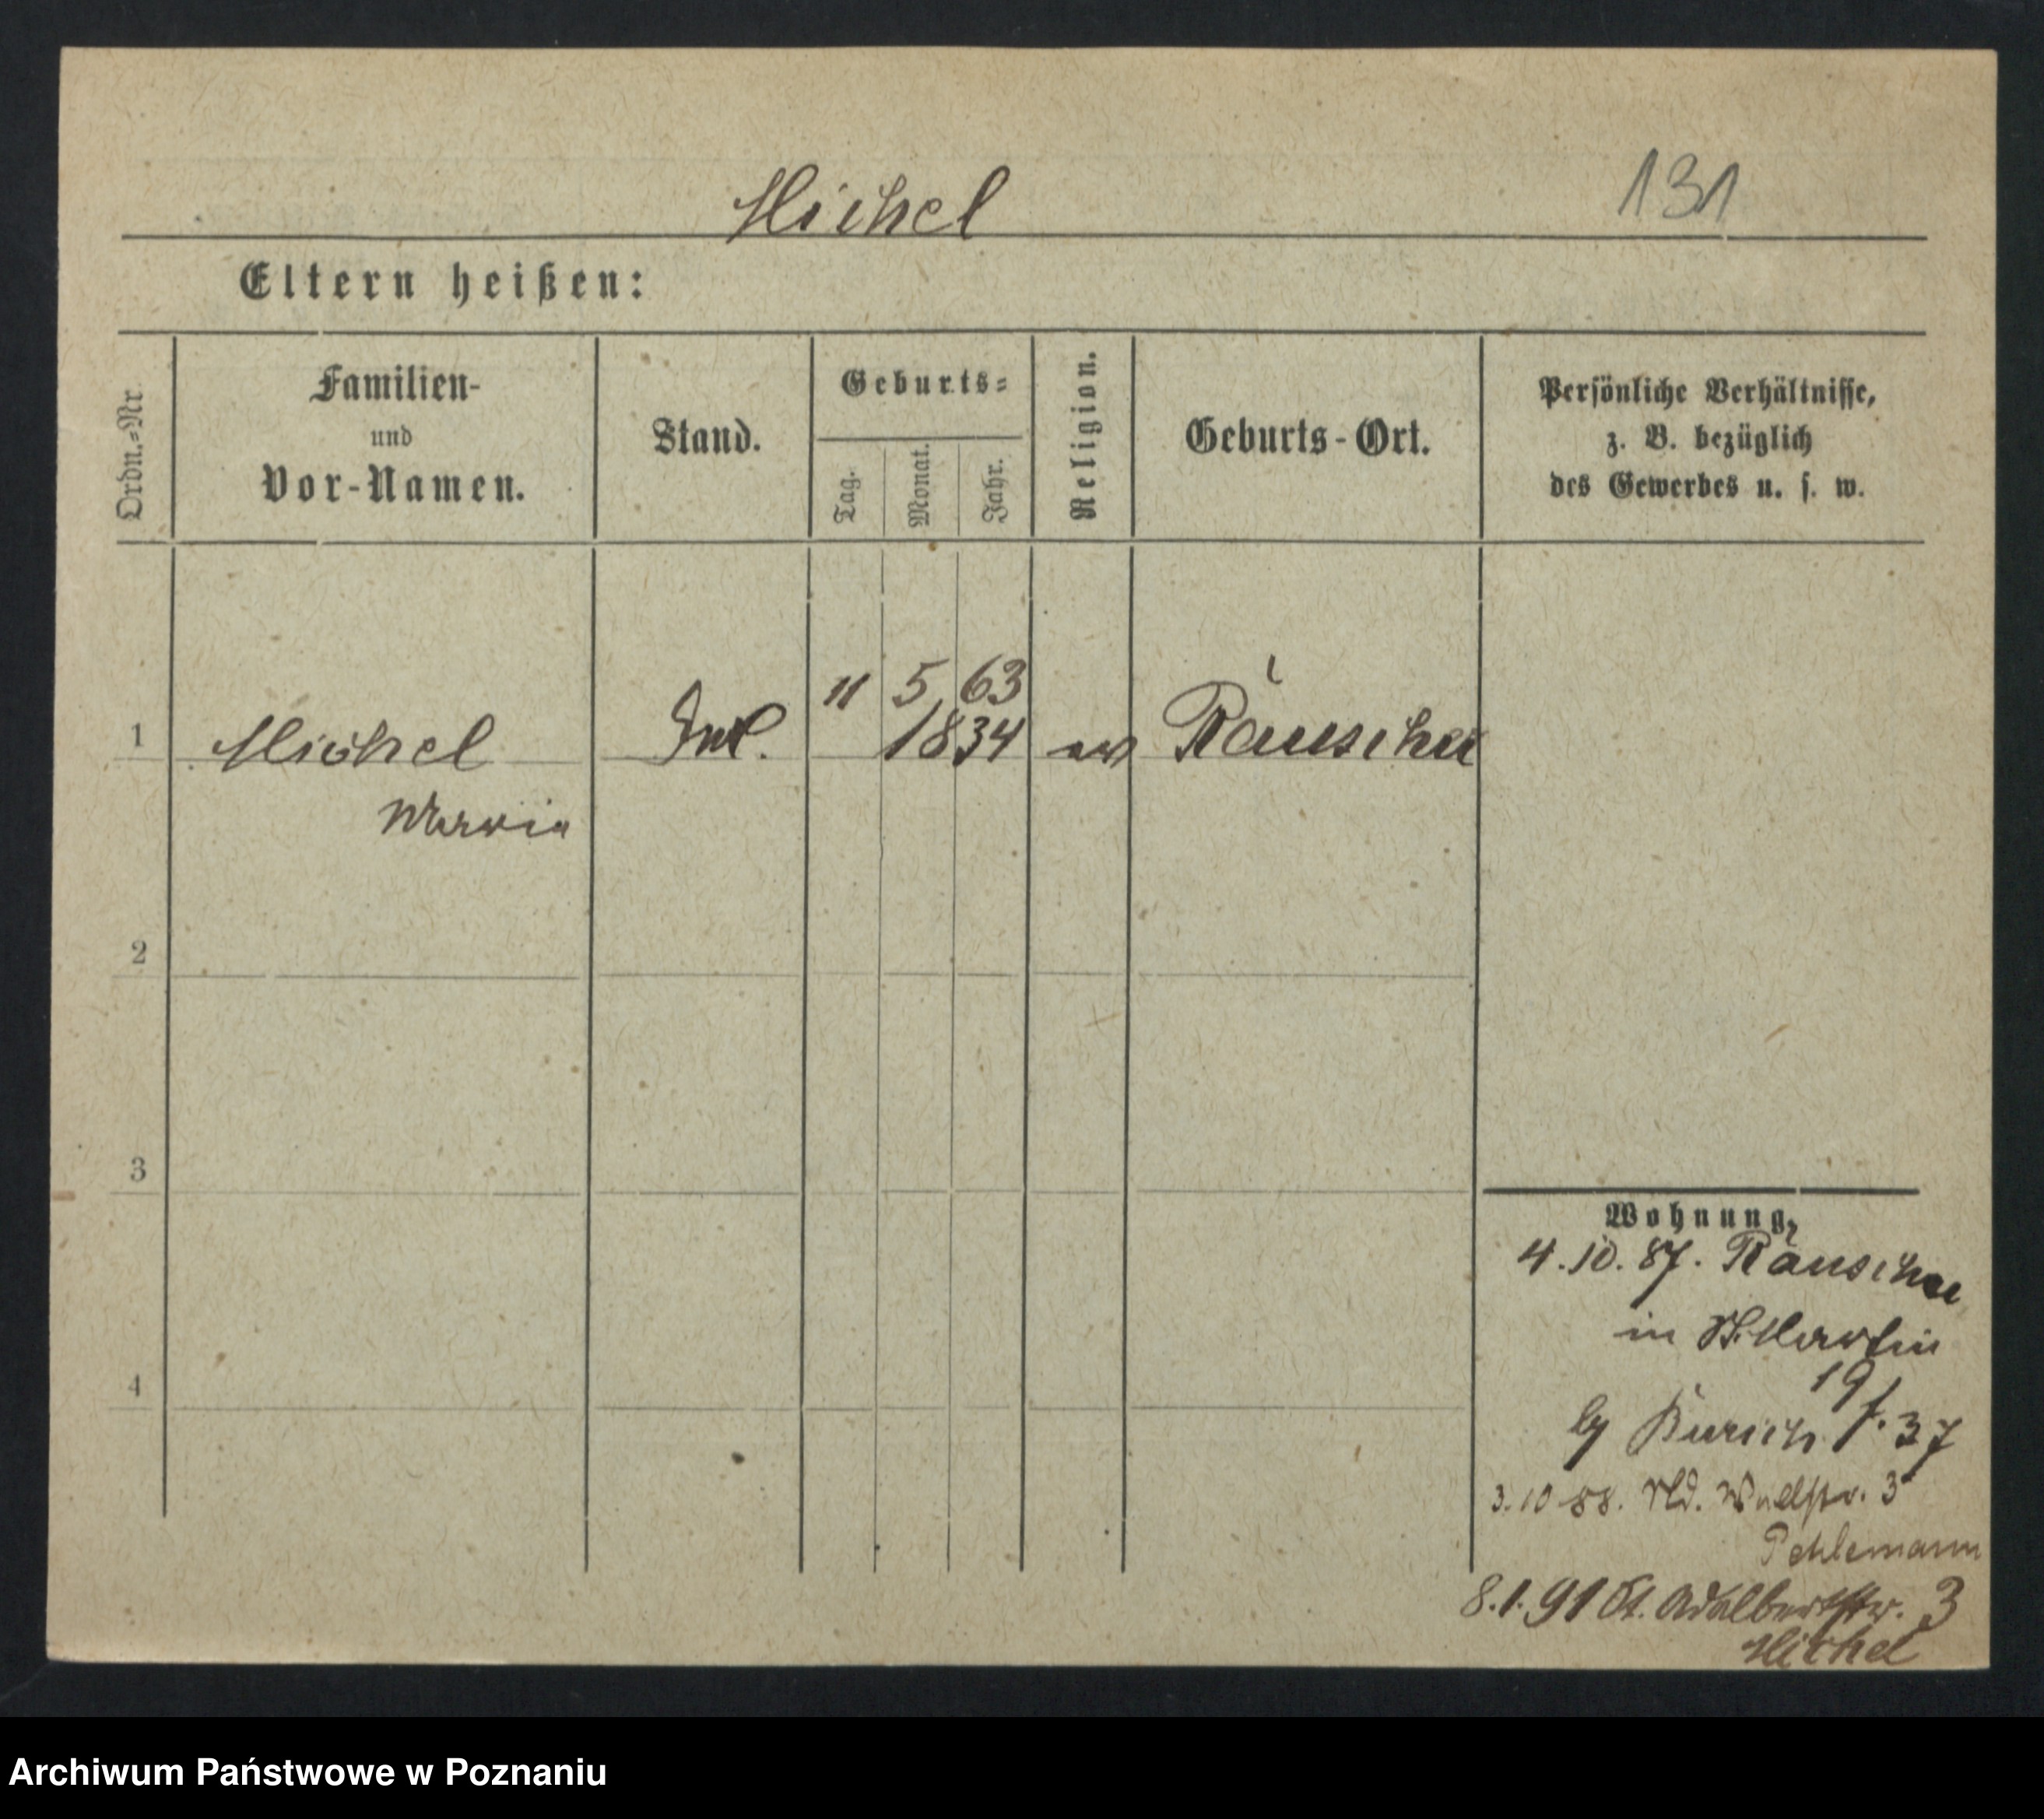 Michel 131
Eltern heißen:
Ordn.=Nr.
Familien-
und
Vor-Namen.
Stand.
Geburts=
Tag.
Monat.
Jahr.
Religion.
Geburts-Ort.
Persönliche Verhältnisse,
z. B. bezüglich
des Gewerbes u. s. w.
11 5, 63
1 Michel 1834 Räuschen
Maria
2
3
4
Wohnung,
4.10.87. Räuschen
in St. Martin
19
37
3.10.88. Wallstr. 3
Pehlemann
8.1.91 St. Adalbertstr. 3
Michel
Archiwum Państwowe w Poznaniu